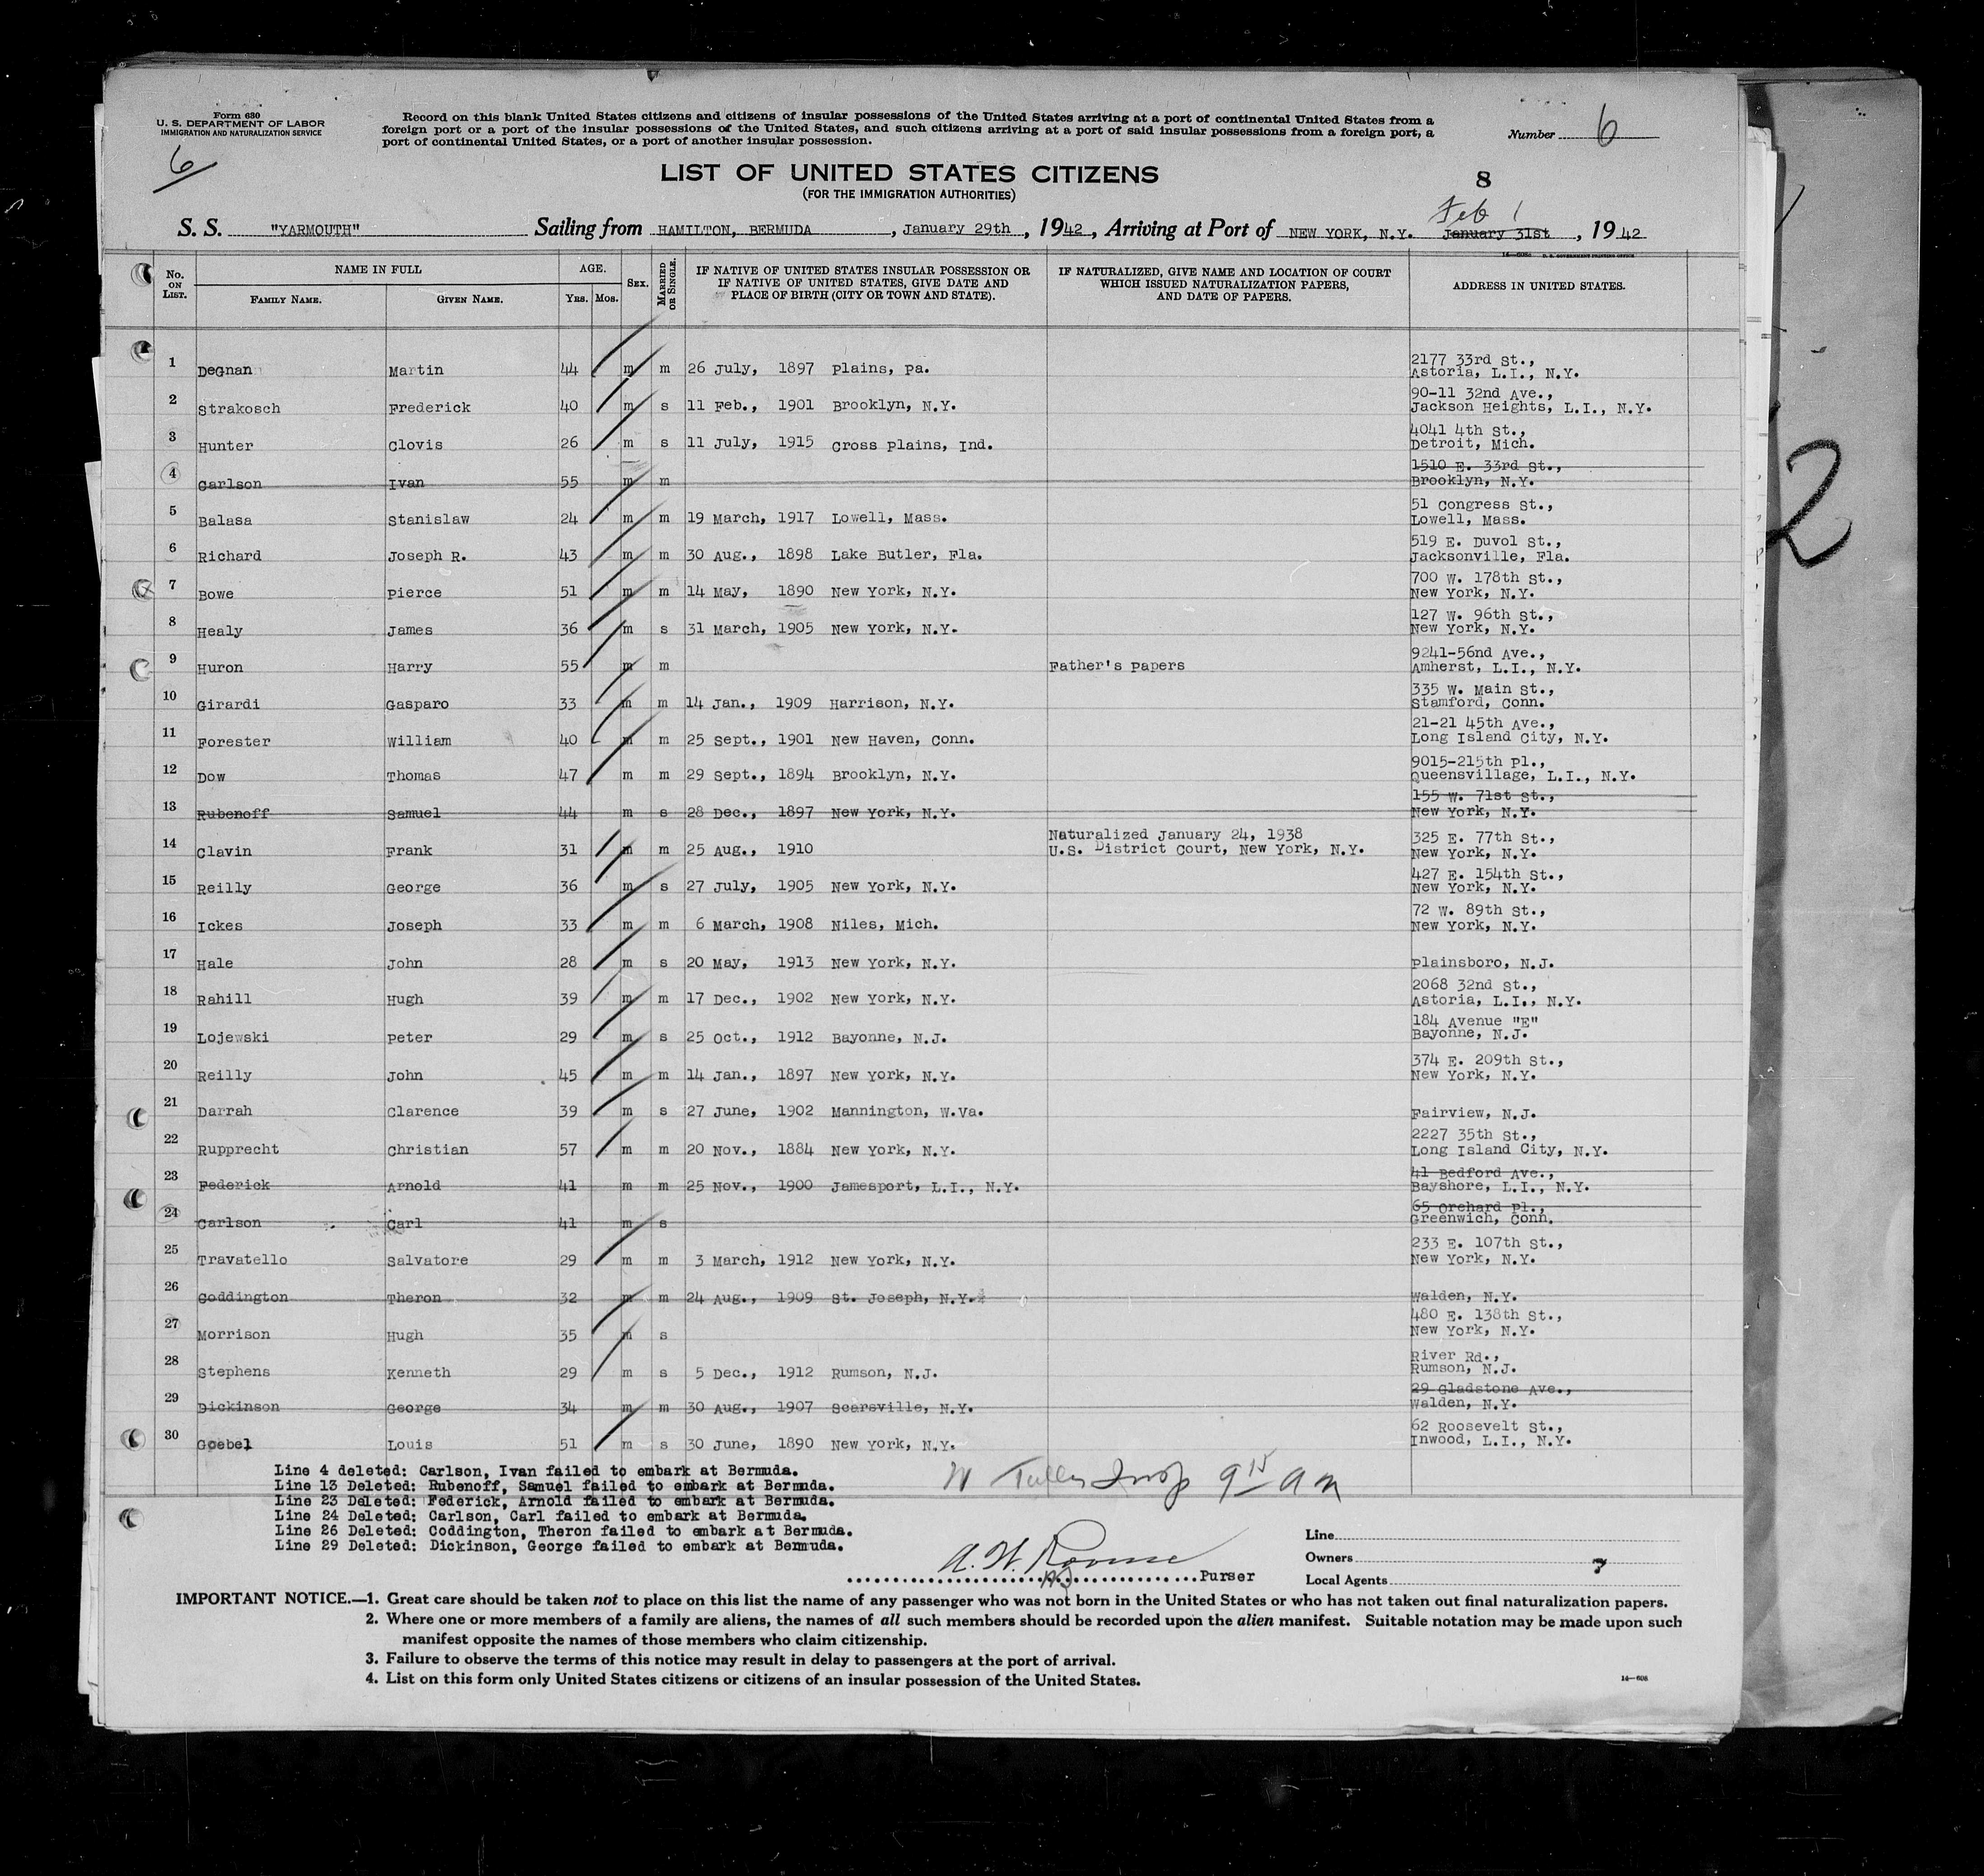 Form 630
U. S. DEPARTMENT OF LABOR
IMMIGRATION AND NATURALIZATION SERVICE
6
Record on this blank United States citizens and citizens of insular possessions of the United States arriving at a port of continental United States from a
foreign port or a port of the insular possessions of the United States, and such citizens arriving at a port of said insular possessions from a foreign port, a
port of continental United States, or a port of another insular possession.
Number 6
LIST OF UNITED STATES CITIZENS
(FOR THE IMMIGRATION AUTHORITIES)
8
Feb 1
S. S. "YARMOUTH" Sailing from HAMILTON, BERMUDA, January 29th, 1942, Arriving at Port of NEW YORK, N.Y. January 31st, 1942
No. ON LIST. NAME IN FULL FAMILY NAME. GIVEN NAME. AGE. YRS. MOS. SEX. MARRIED OR SINGLE. IF NATIVE OF UNITED STATES INSULAR POSSESSION OR IF NATIVE OF UNITED STATES, GIVE DATE AND PLACE OF BIRTH (CITY OR TOWN AND STATE). IF NATURALIZED, GIVE NAME AND LOCATION OF COURT WHICH ISSUED NATURALIZATION PAPERS, AND DATE OF PAPERS. ADDRESS IN UNITED STATES.
1 Degnan Martin 44 m m 26 July, 1897 Plains, Pa. 2177 33rd St., Astoria, L.I., N.Y.
2 Strakosch Frederick 40 m s 11 Feb., 1901 Brooklyn, N.Y. 90-11 32nd Ave., Jackson Heights, L.I., N.Y.
3 Hunter Clovis 26 m s 11 July, 1915 Cross Plains, Ind. 4041 4th St., Detroit, Mich.
4 Carlson Ivan 55 m m 1510 E. 33rd St., Brooklyn, N.Y.
5 Balasa Stanislaw 24 m m 19 March, 1917 Lowell, Mass. 51 Congress St., Lowell, Mass.
6 Richard Joseph R. 43 m m 30 Aug., 1898 Lake Butler, Fla. 519 E. Duvol St., Jacksonville, Fla.
7 Bowe Pierce 51 m m 14 May, 1890 New York, N.Y. 700 W. 178th St., New York, N.Y.
8 Healy James 36 m s 31 March, 1905 New York, N.Y. 127 W. 96th St., New York, N.Y.
9 Huron Harry 55 m m Father's Papers 9241-56nd Ave., Amherst, L.I., N.Y.
10 Girardi Gasparo 33 m m 14 Jan., 1909 Harrison, N.Y. 335 W. Main St., Stamford, Conn.
11 Forester William 40 m m 25 Sept., 1901 New Haven, Conn. 21-21 45th Ave., Long Island City, N.Y.
12 Dow Thomas 47 m m 29 Sept., 1894 Brooklyn, N.Y. 9015-215th Pl., Queensvillage, L.I., N.Y.
13 Rubenoff Samuel 44 m s 28 Dec., 1897 New York, N.Y. 155 W. 71st St., New York, N.Y.
14 Clavin Frank 31 m m 25 Aug., 1910 Naturalized January 24, 1938 U.S. District Court, New York, N.Y. 325 E. 77th St., New York, N.Y.
15 Reilly George 36 m s 27 July, 1905 New York, N.Y. 427 E. 154th St., New York, N.Y.
16 Ickes Joseph 33 m m 6 March, 1908 Niles, Mich. 72 W. 89th St., New York, N.Y.
17 Hale John 28 m s 20 May, 1913 New York, N.Y. Plainsboro, N.J.
18 Rahill Hugh 39 m m 17 Dec., 1902 New York, N.Y. 2068 32nd St., Astoria, L.I., N.Y.
19 Lojewski Peter 29 m s 25 Oct., 1912 Bayonne, N.J. 184 Avenue "E" Bayonne, N.J.
20 Reilly John 45 m m 14 Jan., 1897 New York, N.Y. 374 E. 209th St., New York, N.Y.
21 Darrah Clarence 39 m s 27 June, 1902 Mannington, W.Va. Fairview, N.J.
22 Rupprecht Christian 57 m m 20 Nov., 1884 New York, N.Y. 2227 35th St., Long Island City, N.Y.
23 Federick Arnold 41 m m 25 Nov., 1900 Jamesport, L.I., N.Y. 41 Bedford Ave., Bayshore, L.I., N.Y.
24 Carlson Carl 41 m s 65 Orchard Pl., Greenwich, Conn.
25 Travatello Salvatore 29 m m 3 March, 1912 New York, N.Y. 233 E. 107th St., New York, N.Y.
26 Coddington Theron 32 m m 24 Aug., 1909 St. Joseph, N.Y. Walden, N.Y.
27 Morrison Hugh 35 m s 480 E. 138th St., New York, N.Y.
28 Stephens Kenneth 29 m s 5 Dec., 1912 Rumson, N.J. River Rd., Rumson, N.J.
29 Dickinson George 34 m m 30 Aug., 1907 Searsville, N.Y. 29 Gladstone Ave., Walden, N.Y.
30 Goebel Louis 51 m s 30 June, 1890 New York, N.Y. 62 Roosevelt St., Inwood, L.I., N.Y.
Line 4 deleted: Carlson, Ivan failed to embark at Bermuda.
Line 13 Deleted: Rubenoff, Samuel failed to embark at Bermuda.
Line 23 Deleted: Federick, Arnold failed to embark at Bermuda.
Line 24 Deleted: Carlson, Carl failed to embark at Bermuda.
Line 26 Deleted: Coddington, Theron failed to embark at Bermuda.
Line 29 Deleted: Dickinson, George failed to embark at Bermuda.
Insp 9 15 am
Purser
Line
Owners
Local Agents
IMPORTANT NOTICE.—1. Great care should be taken not to place on this list the name of any passenger who was not born in the United States or who has not taken out final naturalization papers.
2. Where one or more members of a family are aliens, the names of all such members should be recorded upon the alien manifest. Suitable notation may be made upon such
manifest opposite the names of those members who claim citizenship.
3. Failure to observe the terms of this notice may result in delay to passengers at the port of arrival.
4. List on this form only United States citizens or citizens of an insular possession of the United States.
2